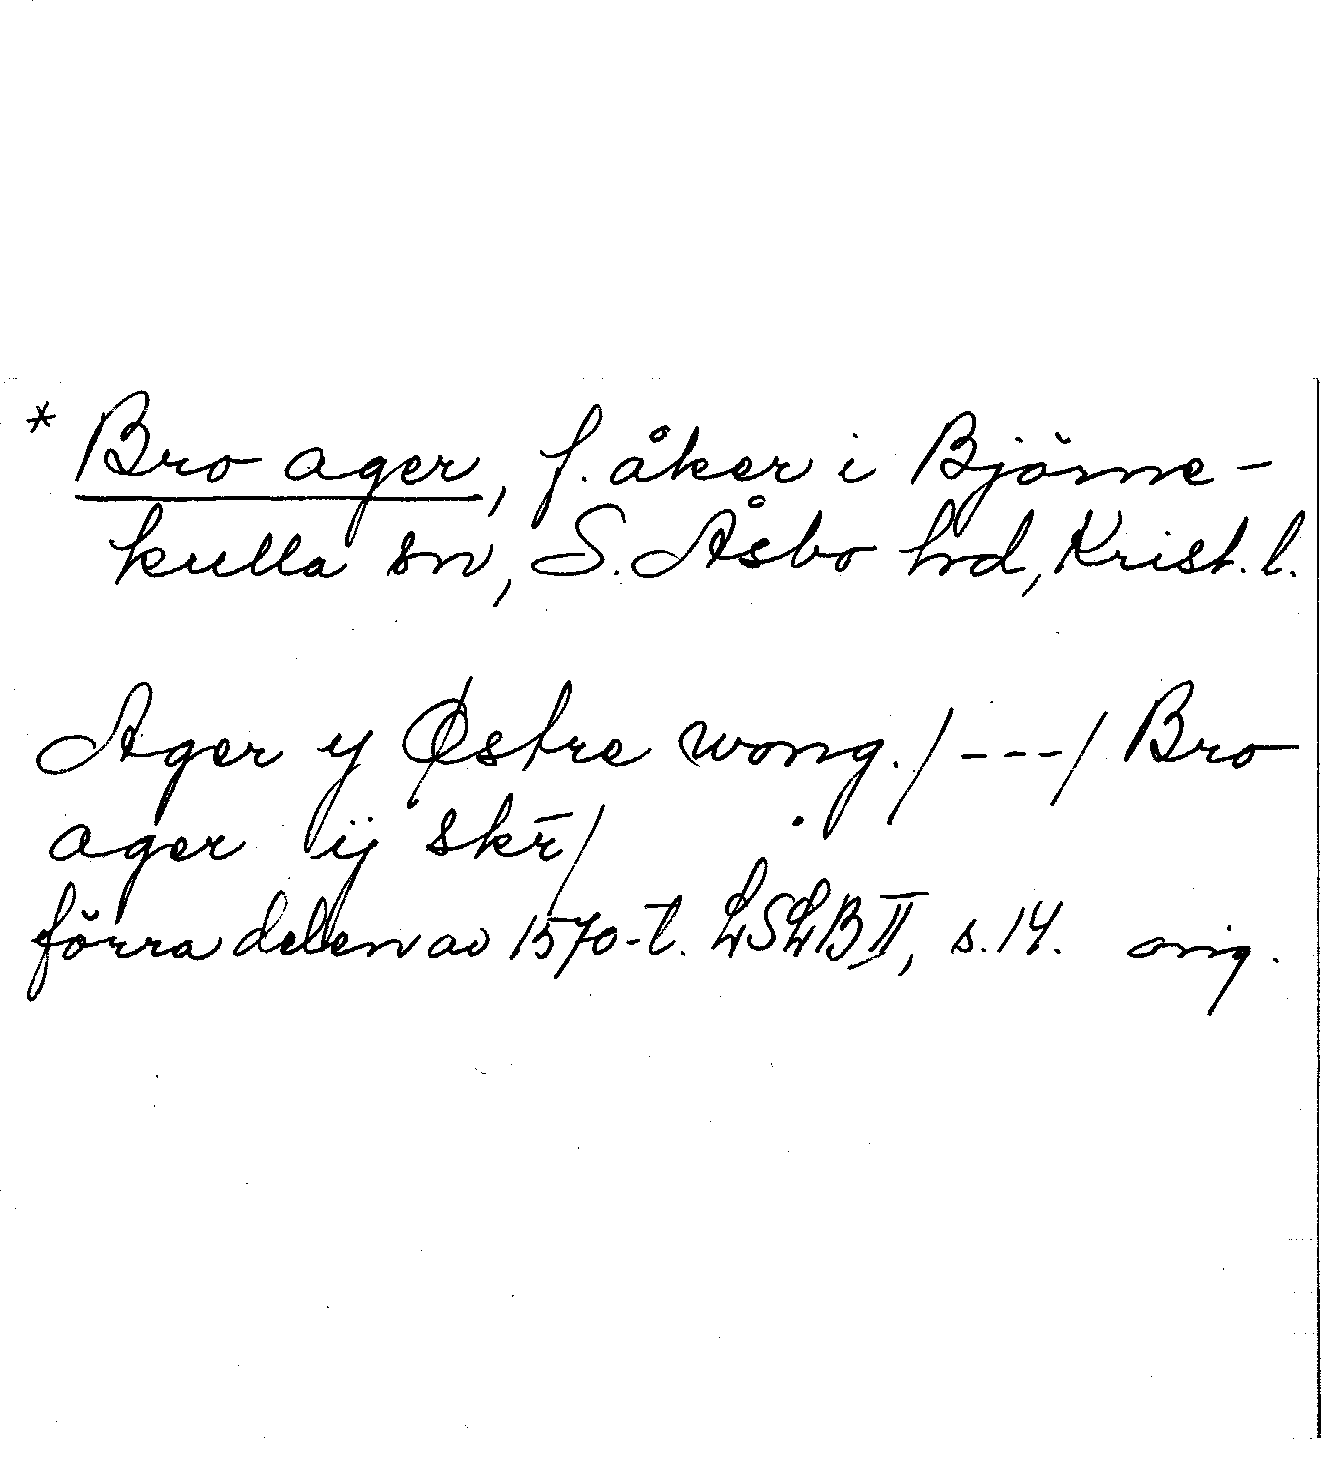 * Bro ager, f. åker i Björne-
kulla sn, S. Åsbo hd, Krist. l.
Ager y Østre wong. /---/ Bro
ager ij skr̄/
förra delen av 1570-t. LSLB II, s. 14. orig.